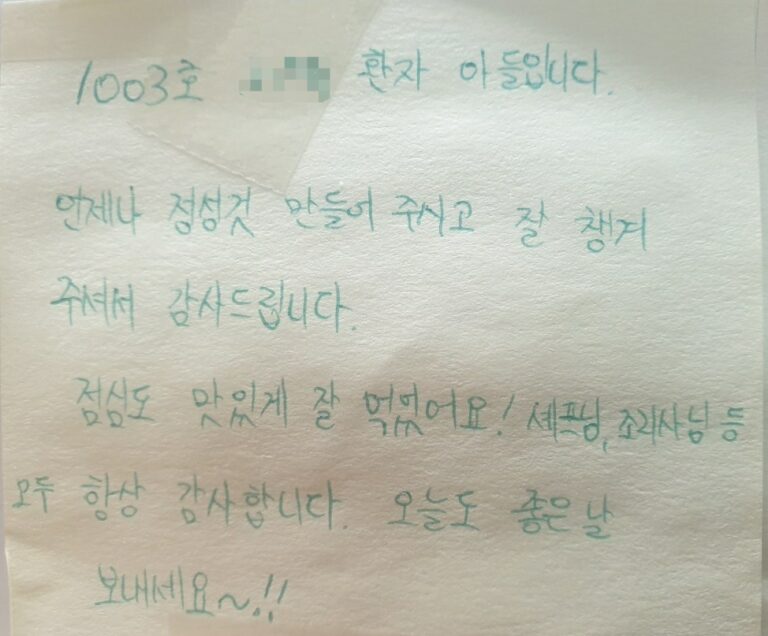 1003호 환자 아들입니다.
언제나 정성것 만들어 주시고 잘 챙겨
주셔서 감사드립니다.
점심도 맛있게 잘 먹었어요! 셰프님, 조리사님 등
모두 항상 감사합니다. 오늘도 좋은 날
보내세요~!!